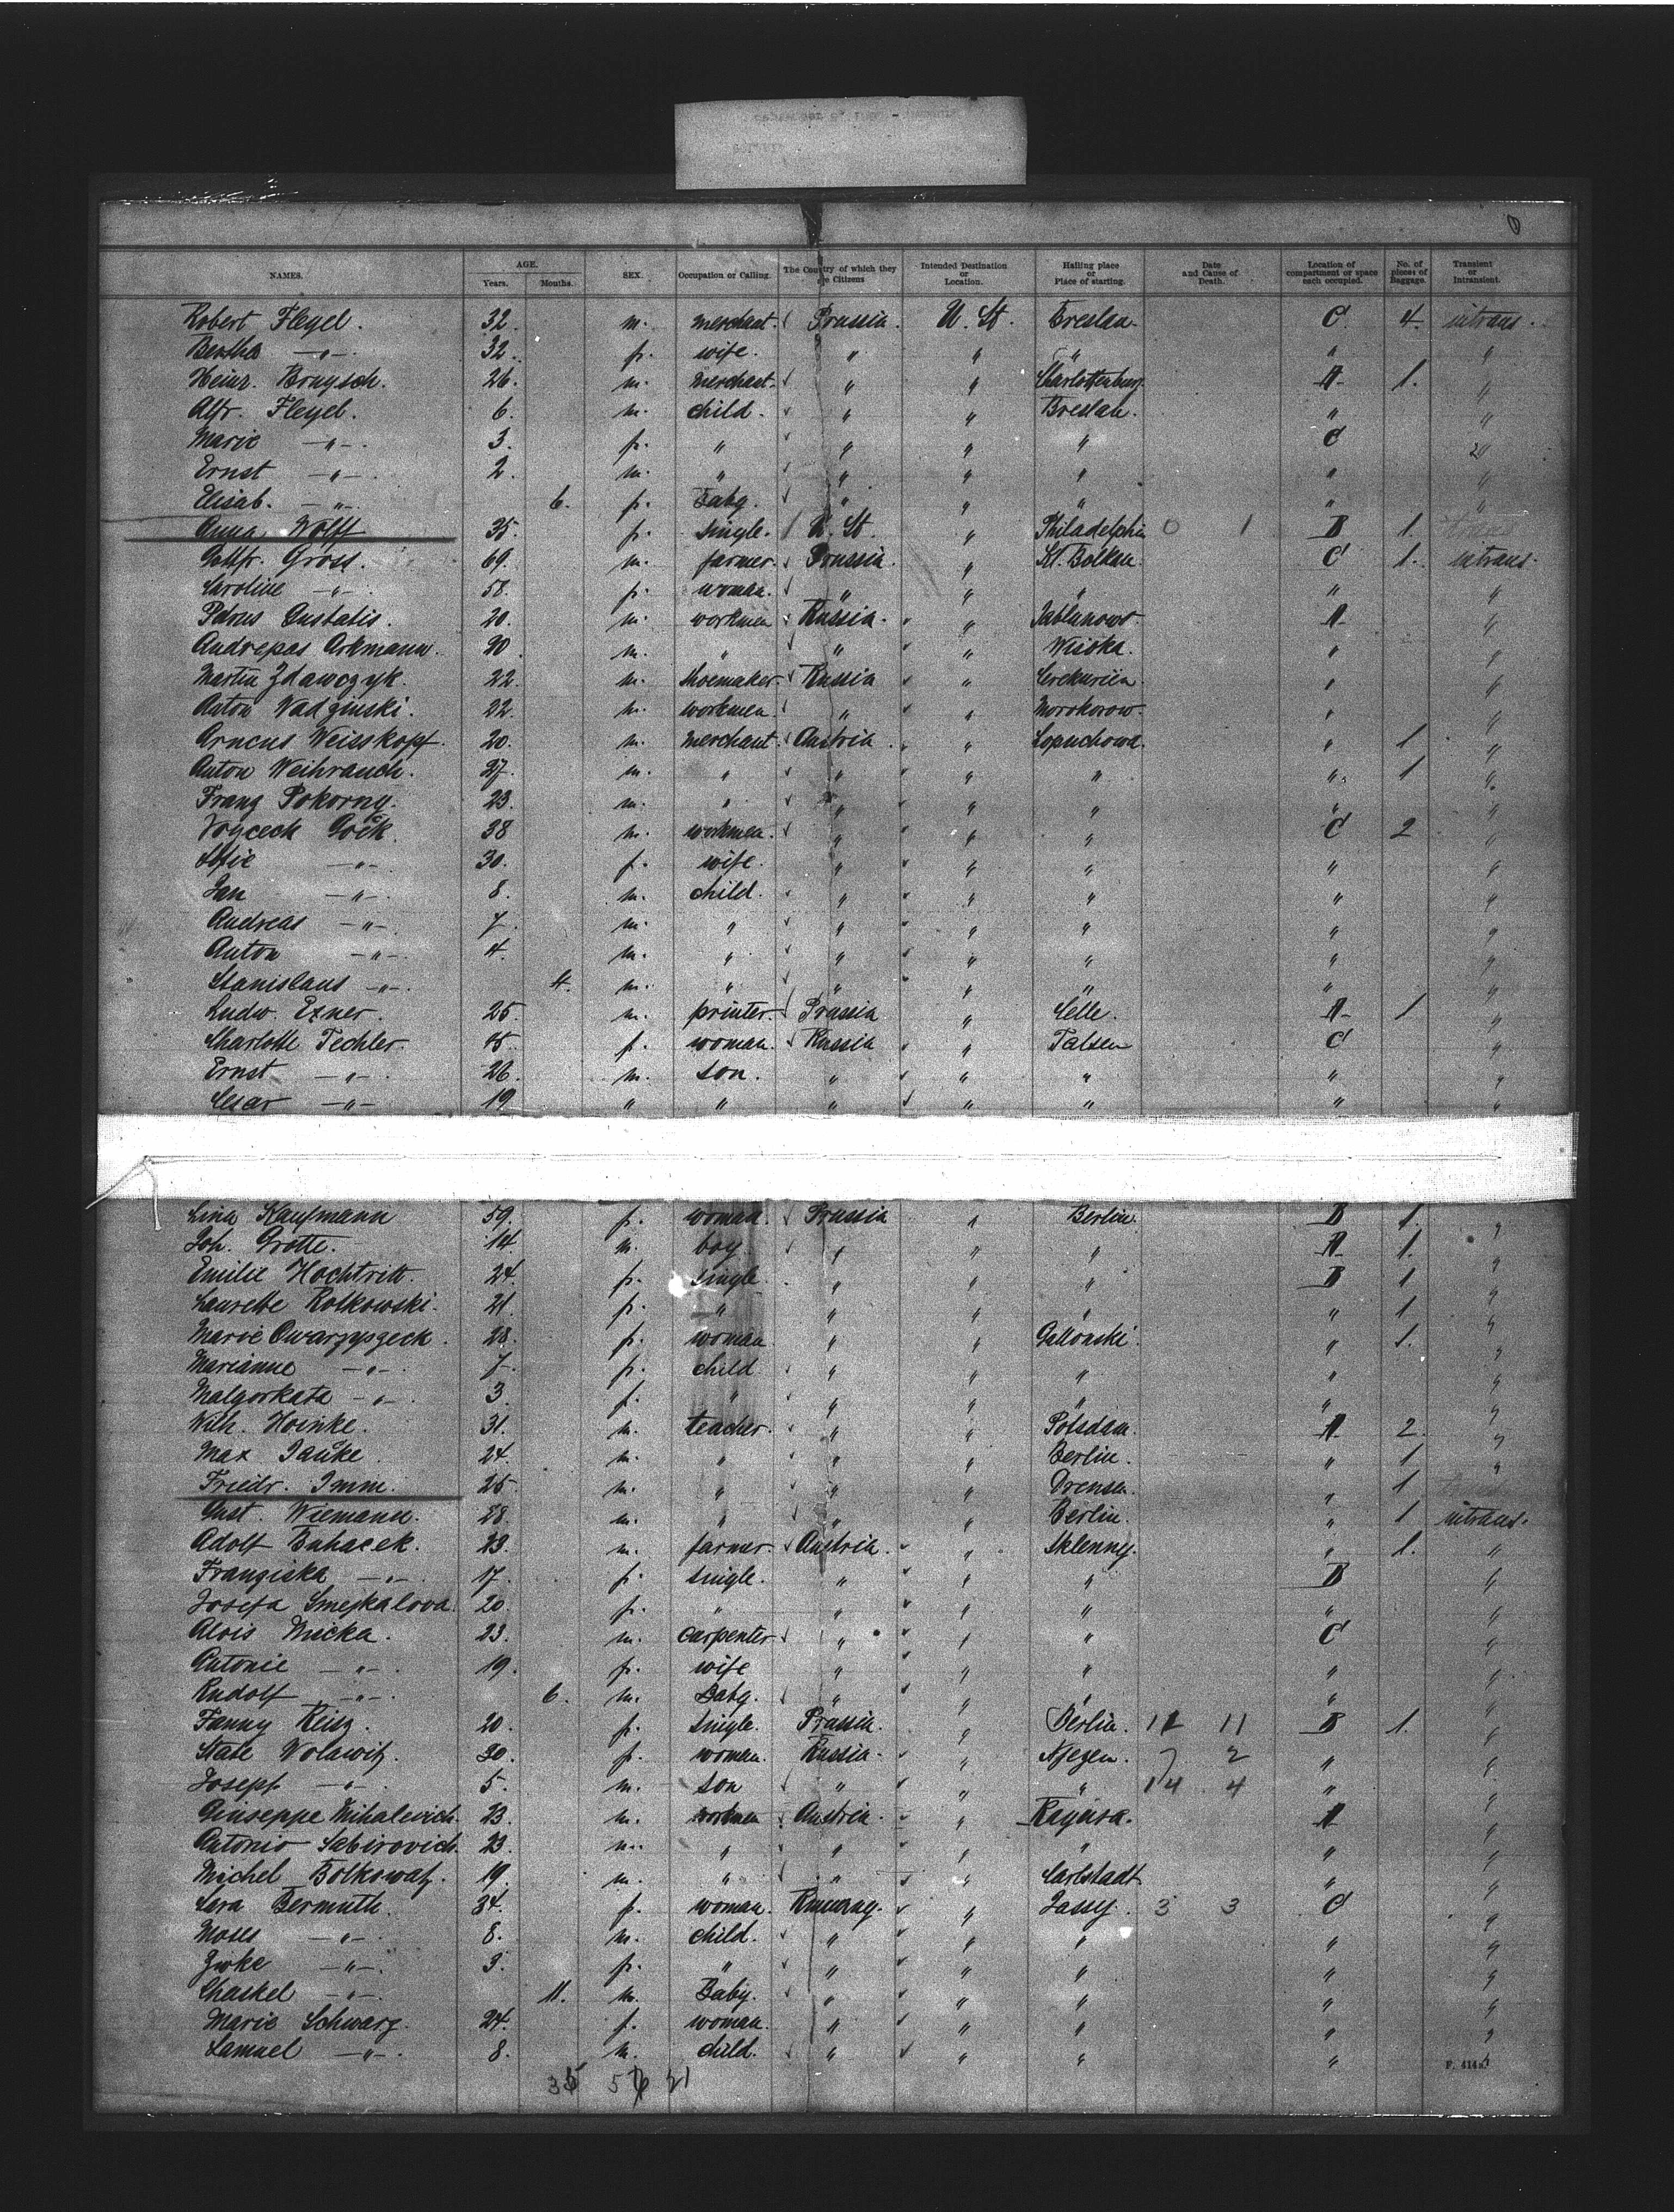 NAMES. AGE. Years. Months. SEX. Occupation or Calling. The Country of which they are Citizens Intended Destination or Location. Hailing place or Place of starting. Date and Cause of Death. Location of compartment or space each occupied. No. of pieces of Baggage. Transient or Intransient.
Robert Fleyel. 32. m. merchant. Prussia. U. St. Breslau. C 4. intrans.
Bertha -"-. 32. f. wife. " " " " "
Heinr. Bonysch. 26. m. merchant. " " Charlottenburg. A 1. "
Alfr. Fleyel. 6. m. child. " " Breslau. " "
Marie -"-. 3. f. " " " " C "
Ernst -"-. 2. m. " " " " " "
Elisab. -"-. 6. f. Baby. " " " " "
Anna Wolff 35. f. single. U. St. " Philadelphia 0 1 B 1.
Gottfr. Gross. 69. m. farmer. Prussia. " Kl. Bolkau. C 1. intrans.
Caroline -"-. 58. f. woman. " " " " "
Petrus Gustatis. 20. m. workmen Russia. " Jablunowo. A "
Andrepas Arkmann. 20. m. " " " Wisoka. " "
Martin Zdawczyk. 22. m. shoemaker. Russia " " "
Anton Vadzinski. 22. m. workmen. " " Morokorow. " "
Arncus Weisskopf. 20. m. merchant. Austria. " Lopuchowa. " 1 "
Anton Weihrauch. 27. m. " " " " " 1 "
Franz Pokorny. 23. m. " " " " " "
Voyceck Gock. 38 m. workmen. " " " C 2 "
Sofie -"-. 30. f. wife. " " " " "
Jan -"-. 8. m. child. " " " " "
Andreas -"-. 7. m. " " " " " "
Anton -"-. 4. m. " " " " " "
Stanislaus -"-. 4. m. " " " " " "
Ludw. Exner. 25. m. printer. Prussia " Celle. A 1 "
Charlotte Techler. 45. f. woman. Russia " Talsen C "
Ernst -"-. 26. m. son. " " " " "
Cesar -"- 19 " " " " " " "
Lina Kaufmann 59. f. woman. Prussia " Berlin. B 1. "
Joh. Grotte. 14. m. boy. " " " A 1. "
Emilie Hochtritt. 24. f. single. " " " B 1 "
Laurette Rotkowski. 21. f. " " " " " 1 "
Marie Owarzypzeck. 28. f. woman. " " " 1. "
Marianne -"-. 7. f. child " " " " "
Malgorkata -"-. 3. f. " " " " " "
Wilh. Hoinke. 31. m. teacher. " " Potsdam. A 2. "
Max Janke. 24. m. " " " Berlin. " 1 "
Friedr. Imm. 25. m. " " " Drensen. " 1
Gust. Wiemann. 28. m. " " " Berlin. " 1 intrans.
Adolf Buhacek. 23. m. farmer. Austria. " Sklenny. " 1. "
Franziska -"-. 17. f. single. " " " B "
Josefa Smejkalova. 20. f. " " " " " "
Alois Micka. 23. m. carpenter " " " C "
Antonie -"-. 19. f. wife " " " " "
Rudolf -"-. 6. m. Baby. " " " " "
Fanny Reisz. 20. f. single. Prussia. " Berlin. 11 11 B 1. "
State Wolawitz. 30. f. woman. Russia. " Njezen. 7 2 " "
Josepf -"-. 5. m. son " " " 14 4 " "
Giuseppe Mihalevich. 23. m. workmen Austria. " Ragusa. A "
Antonio Sabirovich. 23. m. " " " " " "
Michel Bolkowatz. 19. m. " " " Carlstadt. " "
Sara Bermuth. 34. f. woman. " Jassy. 3 3 C "
Moses -"-. 8. m. child. " " " " "
Zwoke -"-. 3. f. " " " " " "
Chaskel -"-. 11. m. Baby. " " " " "
Marie Schwarz. 24. f. woman. " " " " "
Samuel -"-. 8. m. child. " " " " "
F. 414a.